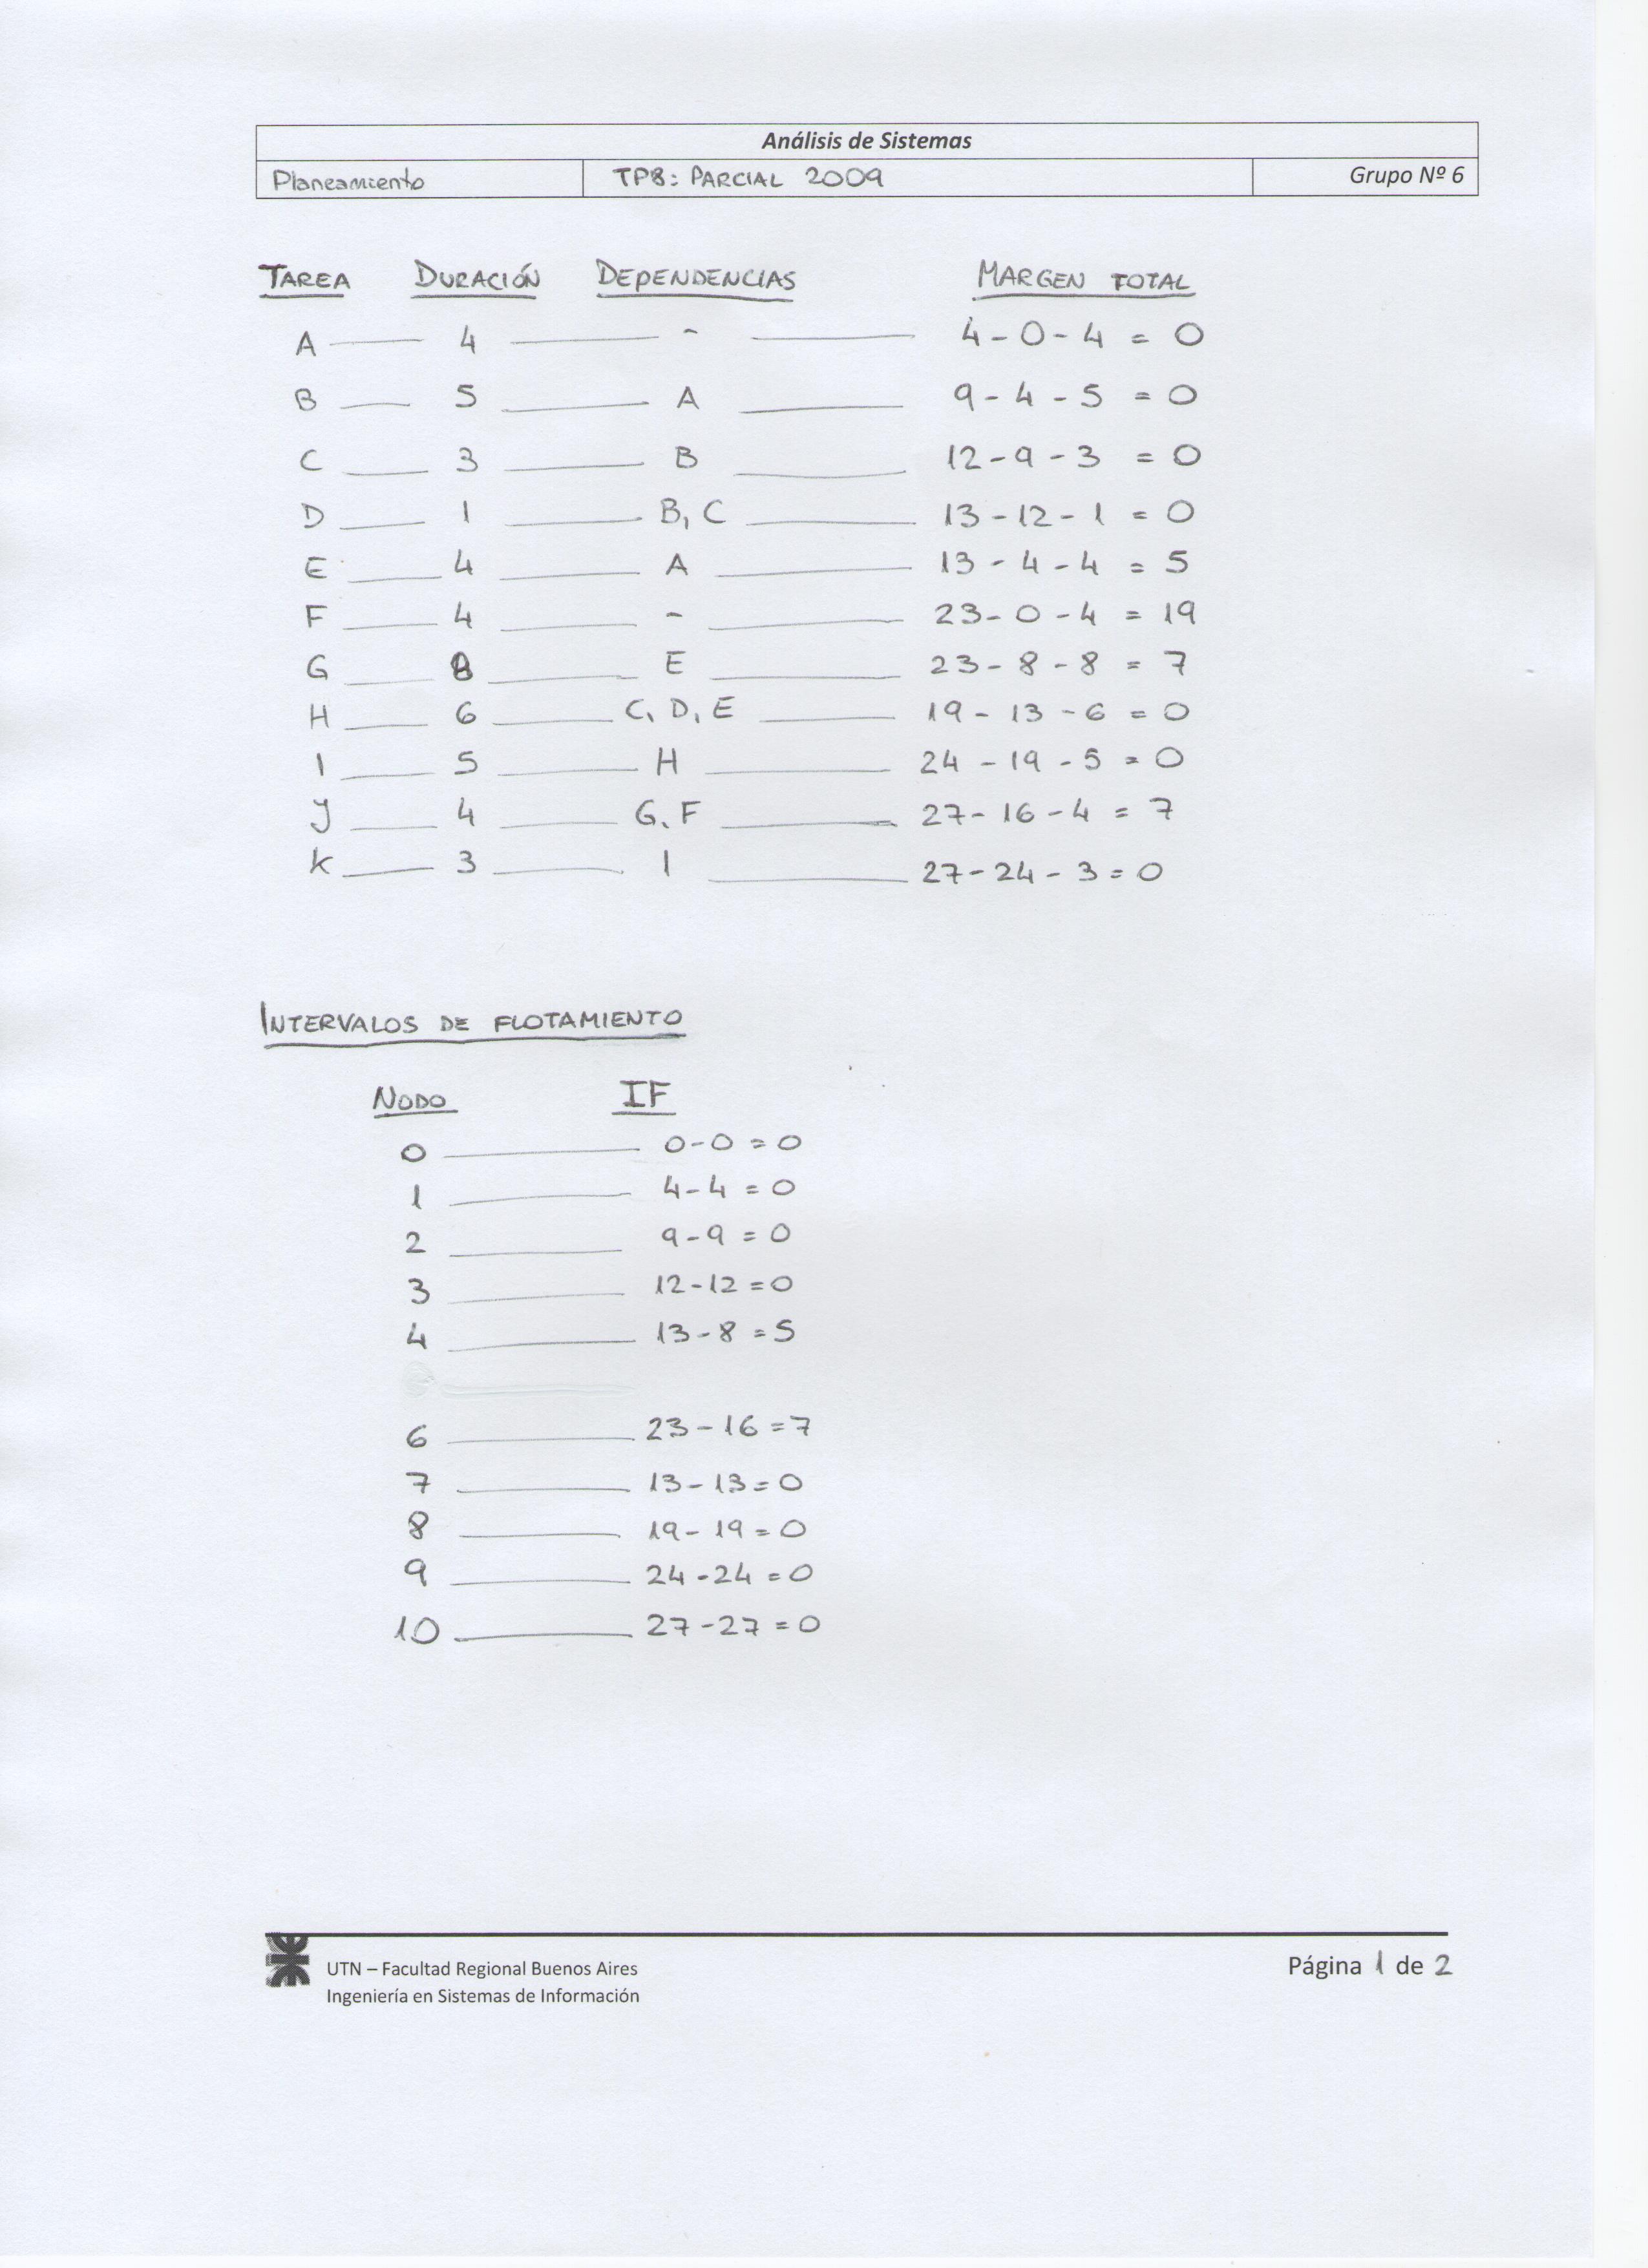 Análisis de Sistemas
Planeamiento TP8: PARCIAL 2009 Grupo Nº 6
TAREA DURACIÓN DEPENDENCIAS MARGEN TOTAL
A 4 - 4 - 0 - 4 = 0
B 5 A 9 - 4 - 5 = 0
C 3 B 12 - 9 - 3 = 0
D 1 B, C 13 - 12 - 1 = 0
E 4 A 13 - 4 - 4 = 5
F 4 - 23 - 0 - 4 = 19
G 8 E 23 - 8 - 8 = 7
H 6 C, D, E 19 - 13 - 6 = 0
I 5 H 24 - 19 - 5 = 0
J 4 G, F 27 - 16 - 4 = 7
K 3 I 27 - 24 - 3 = 0
INTERVALOS DE FLOTAMIENTO
NODO IF
0 0 - 0 = 0
1 4 - 4 = 0
2 9 - 9 = 0
3 12 - 12 = 0
4 13 - 8 = 5
6 23 - 16 = 7
7 13 - 13 = 0
8 19 - 19 = 0
9 24 - 24 = 0
10 27 - 27 = 0
UTN – Facultad Regional Buenos Aires Página 1 de 2
Ingeniería en Sistemas de Información